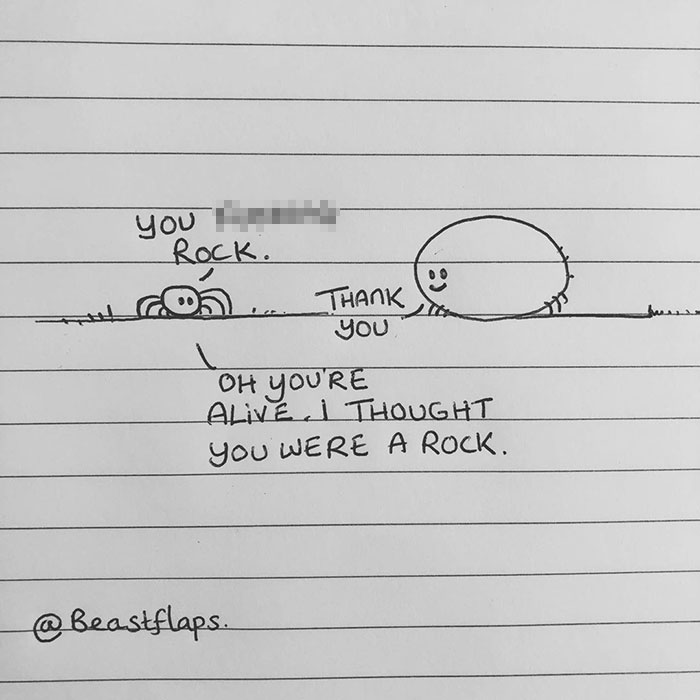 YOU
ROCK.
THANK
YOU
OH YOU'RE
ALIVE. I THOUGHT
YOU WERE A ROCK.
@Beastflaps.